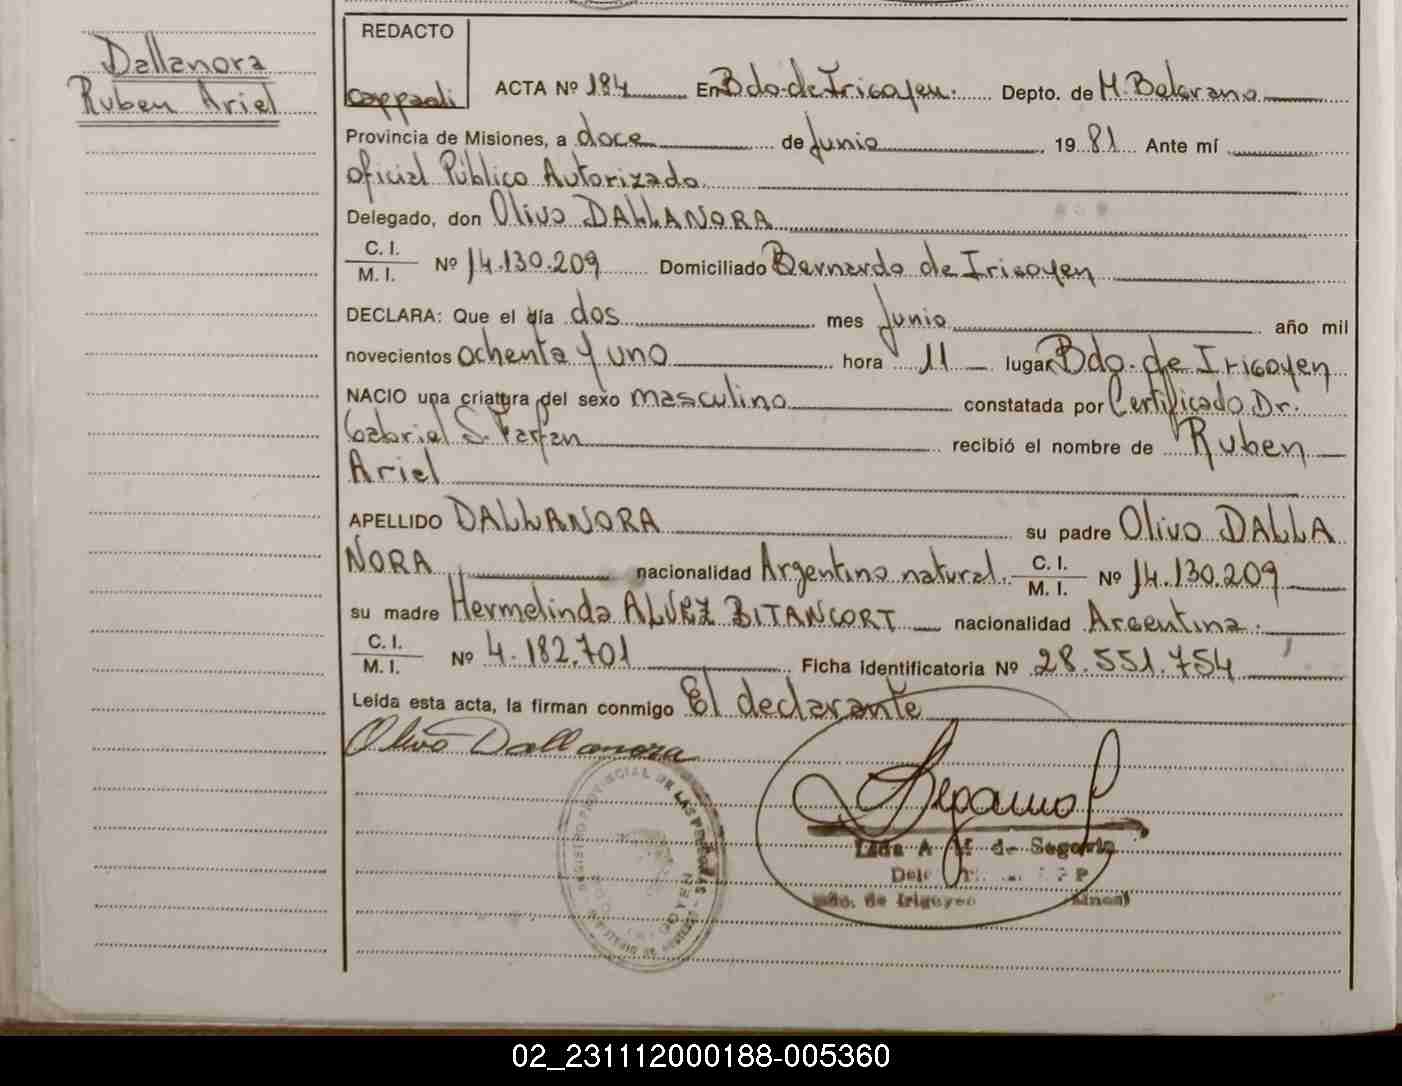 Dallanora
Ruben Ariel
REDACTO
Cappaoli
ACTA Nº 184 En Bdo. de Irigoyen. Depto. de M. Belgrano
Provincia de Misiones, a doce de Junio 1981 Ante mí
oficial Público Autorizado
Delegado, don Olivo DALLANORA
C. I.
M. I. Nº 14.130.209 Domiciliado Bernardo de Irigoyen
DECLARA: Que el día dos mes Junio año mil
novecientos ochenta y uno hora 11 lugar Bdo. de Irigoyen
NACIO una criatura del sexo masculino constatada por Certificado Dr.
Gabriel S. Farfan recibió el nombre de Ruben
Ariel
APELLIDO DALLANORA su padre Olivo DALLA
NORA nacionalidad Argentino natural. C. I.
M. I. Nº 14.130.209
su madre Hermelinda ALVEZ BITANCORT nacionalidad Argentina.
C. I.
M. I. Nº 4.182.701 Ficha identificatoria Nº 28.551.754
Leída esta acta, la firman conmigo El declarante
Olivo Dallanora
REGISTRO PROVINCIAL DE LAS PERSONAS
Lida A. M. de Segovia
Bdo. de Irigoyen
02_231112000188-005360